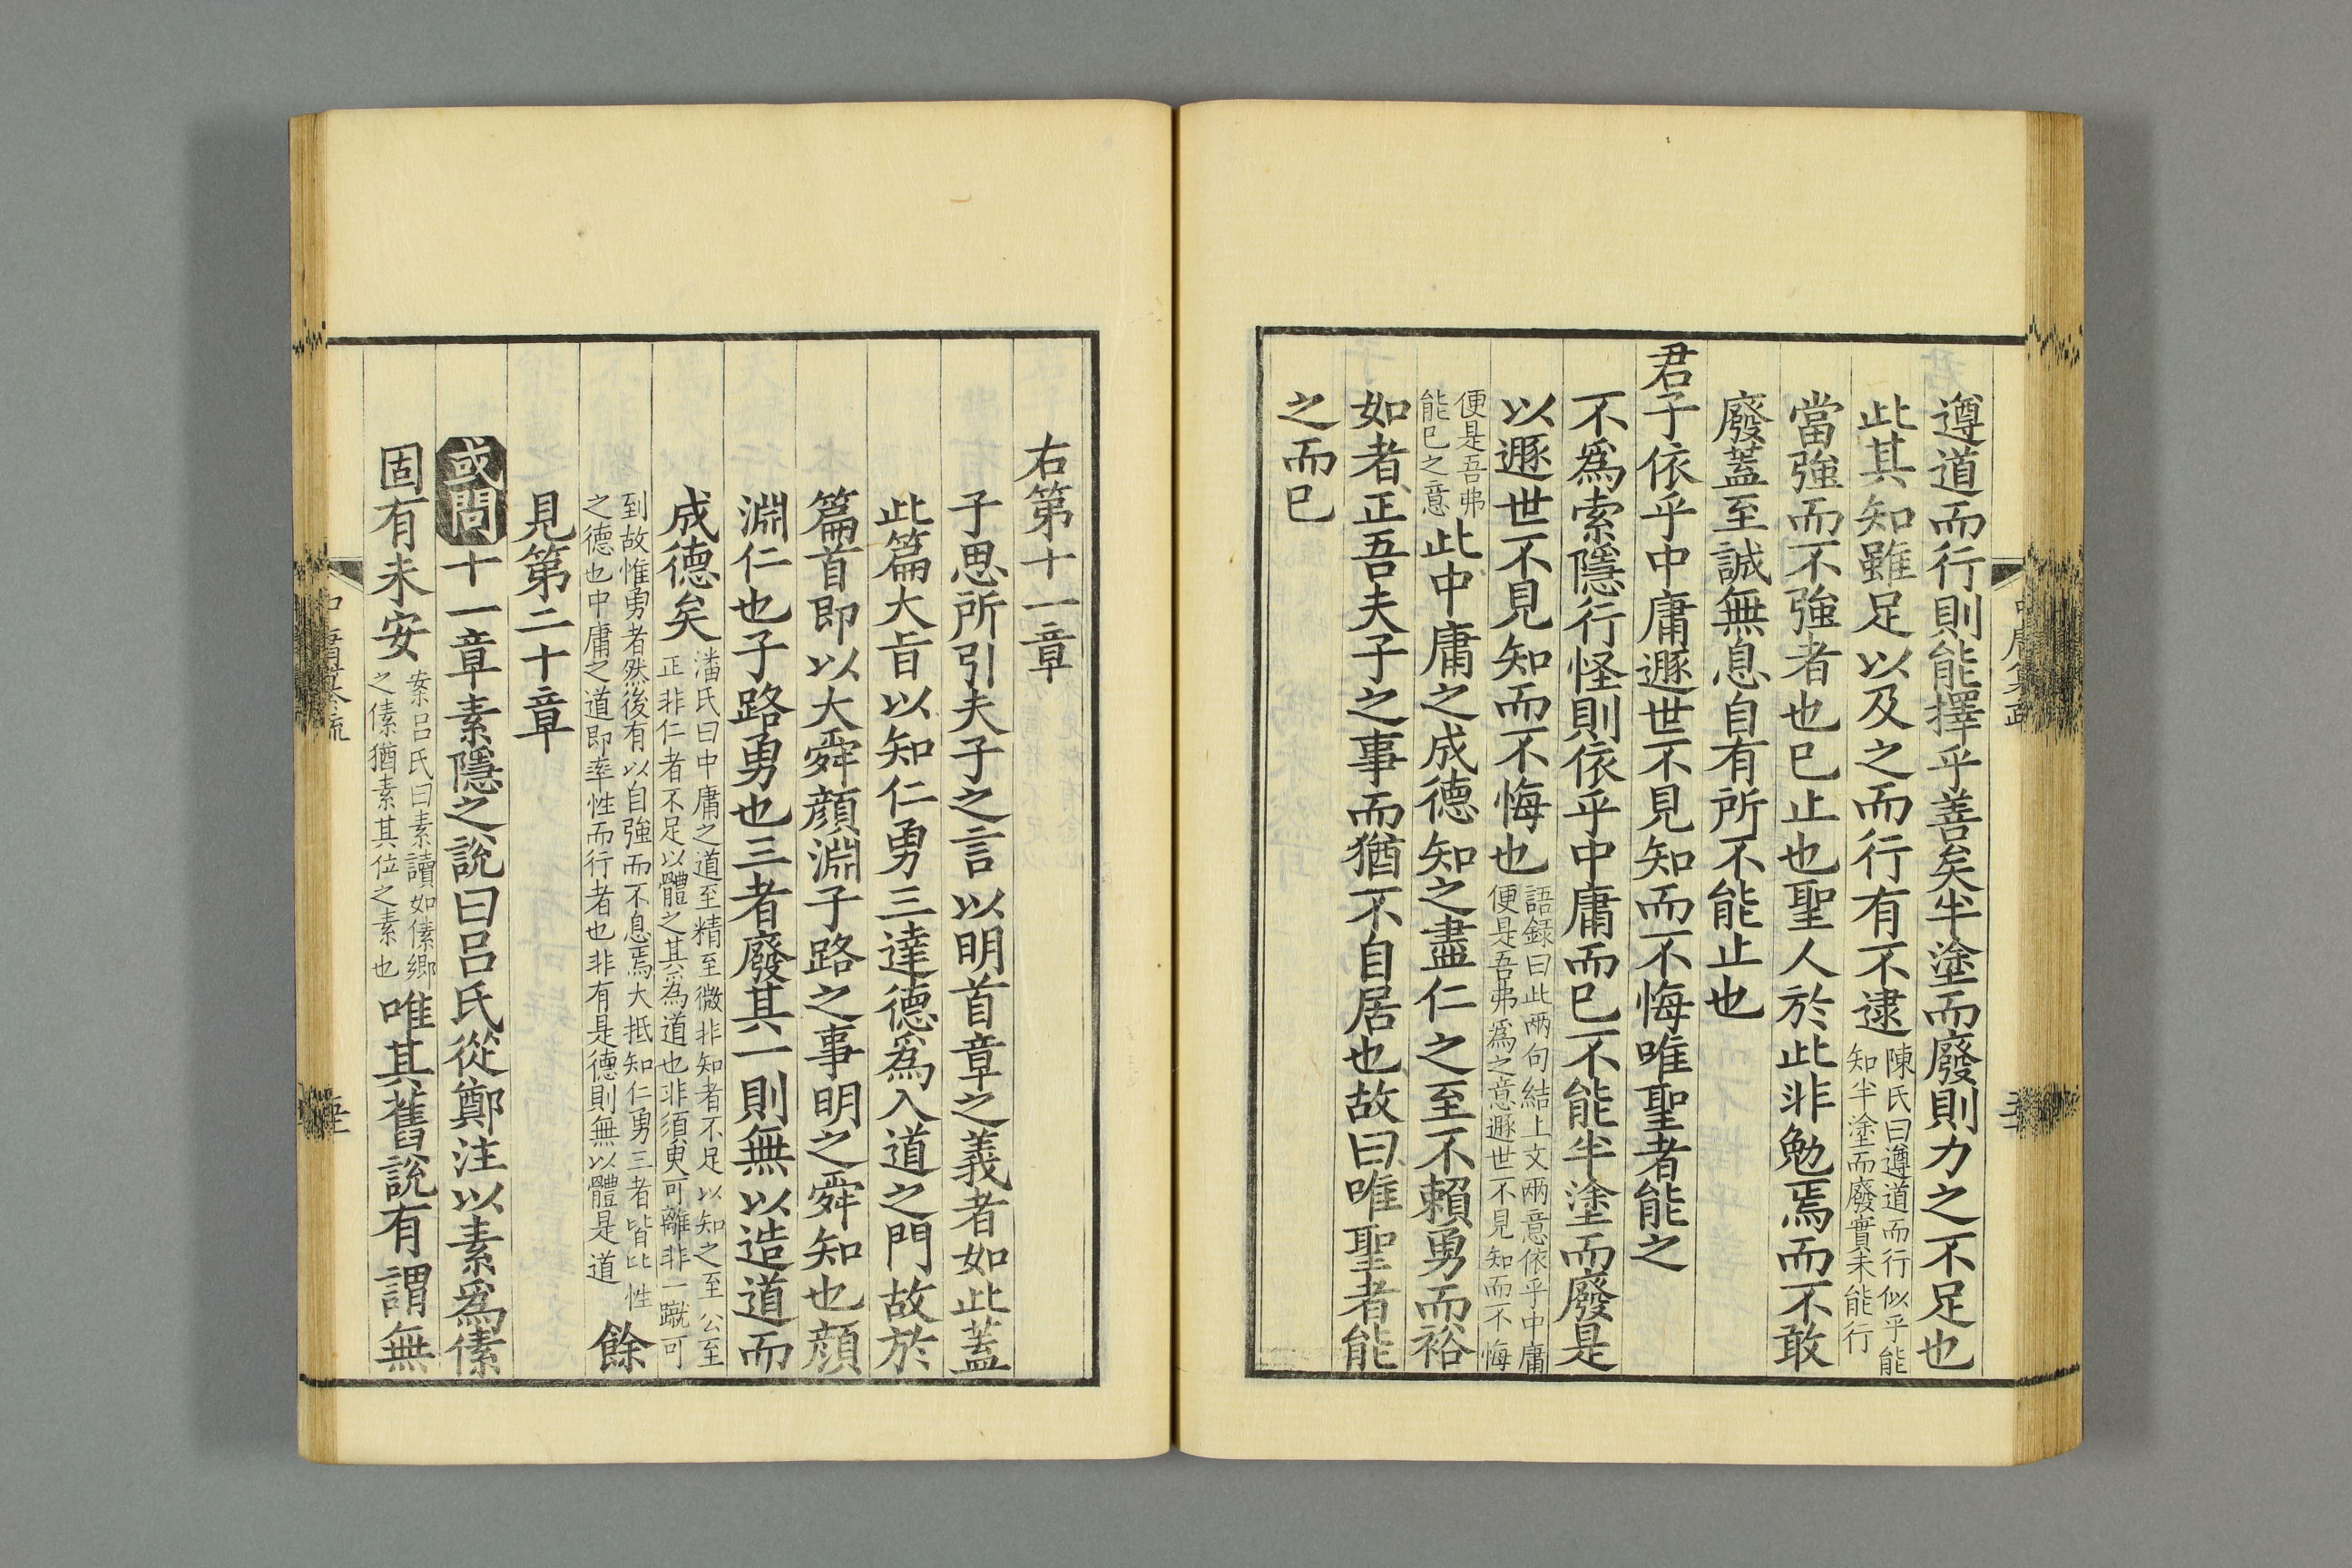 遵道而行則能擇乎善矣半塗而廢則力之不足也
此其知雖足以及之而行有不逮陳氏曰遵道而行似乎能
知半塗而廢實未能行
當強而不強者也已止也聖人於此非勉焉而不敢
廢蓋至誠無息自有所不能止也
君子依乎中庸遯世不見知而不悔唯聖者能之
不爲索隱行怪則依乎中庸而已不能半塗而廢是
以遯世不見知而不悔也語錄曰此兩句結上文兩意依乎中庸
便是吾弗爲之意遯世不見知而不悔
便是吾弗
能已之意此中庸之成德知之盡仁之至不賴勇而裕
如者正吾夫子之事而猶不自居也故曰唯聖者能
之而已
右第十一章
子思所引夫子之言以明首章之義者如此蓋
此篇大旨以知仁勇三達德爲入道之門故於
篇首即以大舜顏淵子路之事明之舜知也顏
淵仁也子路勇也三者廢其一則無以造道而
成德矣潘氏曰中庸之道至精至微非知者不足以知之至公至
正非仁者不足以體之其為道也非須臾可離非一蹴可
到故惟勇者然後有以自強而不息焉大抵知仁勇三者皆此性
之德也中庸之道即率性而行者也非有是德則無以體是道餘
見第二十章
或問十一章素隱之說曰呂氏從鄭注以素爲傃
固有未安案呂氏曰素讀如傃鄉
之傃猶素其位之素也唯其舊說有謂無